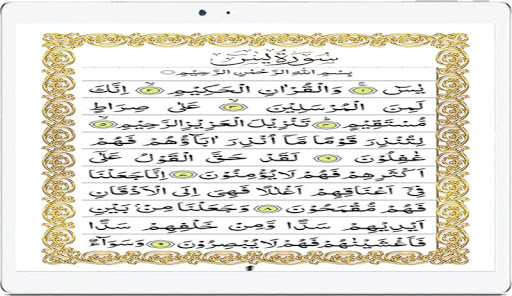 سُوْرَةُ يٰسٓ
بِسْمِ اللّٰهِ الرَّحْمٰنِ الرَّحِيْمِ
يٰسٓ ۝١ وَالْقُرْاٰنِ الْحَكِيْمِ ۝٢ اِنَّكَ
لَمِنَ الْمُرْسَلِيْنَ ۝٣ عَلٰى صِرَاطٍ
مُّسْتَقِيْمٍ ۝٤ تَنْزِيْلَ الْعَزِيْزِ الرَّحِيْمِ ۝٥
لِتُنْذِرَ قَوْمًا مَّآ اُنْذِرَ اٰبَآؤُهُمْ فَهُمْ
غٰفِلُوْنَ ۝٦ لَقَدْ حَقَّ الْقَوْلُ عَلٰٓى
اَكْثَرِهِمْ فَهُمْ لَا يُؤْمِنُوْنَ ۝٧ اِنَّا جَعَلْنَا
فِيْٓ اَعْنَاقِهِمْ اَغْلٰلًا فَهِيَ اِلَى الْاَذْقَانِ
فَهُمْ مُّقْمَحُوْنَ ۝٨ وَجَعَلْنَا مِنْۢ بَيْنِ
اَيْدِيْهِمْ سَدًّا وَّمِنْ خَلْفِهِمْ سَدًّا
فَاَغْشَيْنٰهُمْ فَهُمْ لَا يُبْصِرُوْنَ ۝٩ وَسَوَآءٌ